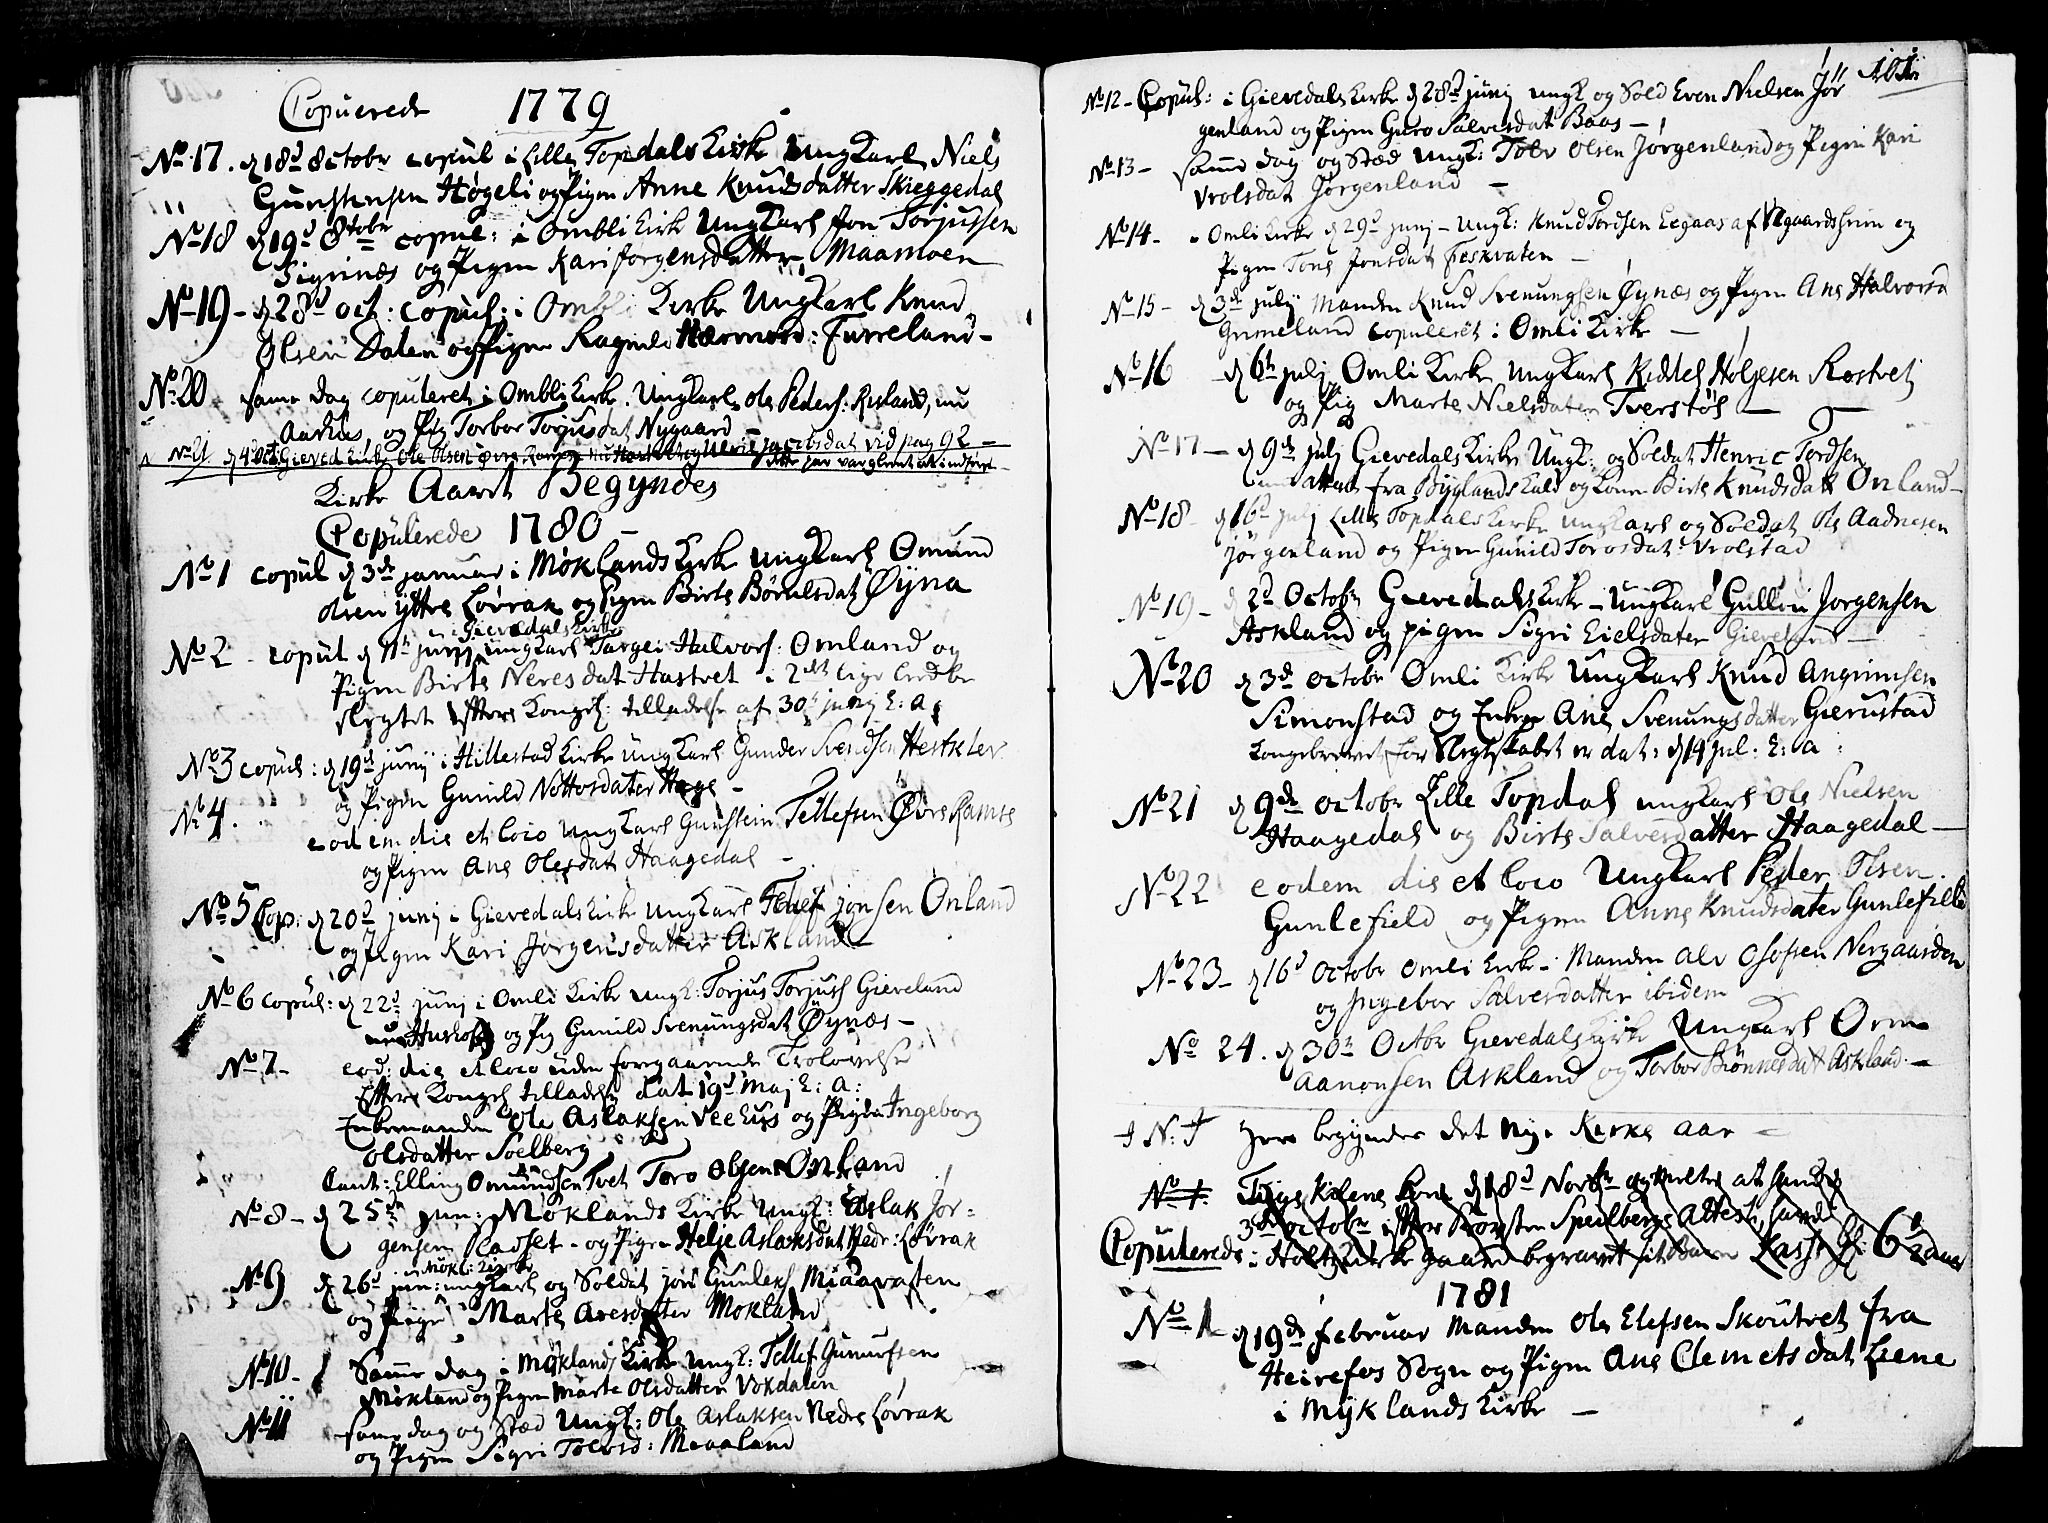 Copulerede 1779
No 17. d 18d 8octobr copul i Lille Topdals Kirke Ungkarl Niels
Gunstensen Høgeli og Pigen Anne Knudsdatter Skieggedal
No 18 d 19d 8tobr copul: i Ombli Kirk Ungkarl Jon Torjussen
Sigrinæs og Pigen Kari Jorgensdatter Maamoen
No 19 - d 28d oct: copul: i Ombli Kirke Ungkarl Knud
Olsen Dalen og Pigen Ragnele Hærmord: Furreland -
No 20 same dag copuleret i Ombli Kirke. Ungkarl Ole Peders: Risland, nu
Aarhus, og Pig Torbor Torjusdat Nygaard
No 21 d 4de oct: Gieved Kirke Ole Olsen Øvre Ramse vid pag 92 -
Kirke Aaret Begyndes
Copulerede 1780 -
No 1 copul d 3de januar i Møklands Kirke Ungkarl Omund
olsen yttre Løvrak og Pigen Birte Børulsdat Øyna
Gievedals Kirke
No 2 - copul d 11te junj ungkarl Targei Halvors: Omland og
Pigen Birte Neresdat Hastvet i 2det lige led be
slegtet efter Kongel: tilladelse af 30te junj h: a:
No 3 copul: d 19d junij i Hillestad Kirke ungkarl Gunder Svendsen Hestkler
og Pigen Gunild Nottosdater Hage -
No 4. eodem die et loco Ungkarl Gunstein Tellefsen Øvre Ramse
og Pigen Ane Olesdat Haagedal -
No 5 Cop: d 20d junj i Gievedals Kirke Ungkarl Tellef jonsen Onland
og Pigen Kari Jørgensdatter Askland -
No 6 copul: d 22d junj i Omli Kirke Ungk: Torjus Torjuss Gieveland
nu Husholt og Pig Gunild Svenungsdat Øynæs -
No 7 - eod: die et loco uden forgaaende Trolovelse
efter Kongel tilladelse dat 19d Maj h: a:
Enkemanden Ole Aslaksen Veehus og Pigen Ingeborg
Olsdatter Soelberg
Caut: Elling Omundsen Tvet Toro Olsen Onland
No 8 - d 25de jun: Møklands Kirke Ungk: Aslak Jør=
gensen Kadset - og Pigen Helje Aslaksdat Nedr: Løvrak
Møkl: Kirke
No 9 d 26d jun: ungkarl og Soldat jon Gunleks Miaavaten
og Pigen Marte Aresdatter Mokland
No 10 - Same dag i Møklands Kirke Ungk: Tellef Gunulfsen
Møkland og Pigen Marte Olsdatter Vokdalen
No 11 same dag og Stæd Ungk: Ole Aslaksen Nedre Lovrak
og Pigen Sigri Tolvsd: Meaaland
101
No 12 - Copul: i Gievedals Kirke d 28d junj Ungk og Sold Even Nielsen Jør
genland og Pigen Guro Salvesdat Baas -
No 13 - same dag og Stæd Ungk: Tolv Olsen Jørgenland og Pigen Kari
Vrolsdat Jørgenland -
No 14 - i Omli Kirke d 29d junj - Ungk: Knud Tordsen Eegaas af Wgaardsheim og
Pigen Tone Jonsdat Feskvaten -
No 15 - d 3de julij Manden Knud Svenungsen Øynæs og Pigen Ane Halvorsd
Grimeland copuleret i Omli Kirke -
No 16 - d 6te julj Omli Kirke Ungkarl Kiddel Holjesen Rostvet
og Pig Marte Nielsdater Tverstøl -
No 17 - d 9de julj Gievedals Kirke Ungk: og Soldat Henric Tordsen
fra Byglands Kald og Konen Birte Knudsdatt Onland -
No 18 - d 16d julj Lille Topdals Kirke Ungkarl og Soldat Ole Aadnesen
jørgenland og Pigen Gunild Torosdat: Vrolstad
No 19 - d 2d Octobr Gievedals Kirke - Ungkarl Gullov Jorgensen
Askland og pigen Sigri Eielsdater -
No 20 d 3de octobr Omli Kirke Ungkarl Knud Angrimsen
Simonstad og Enken Ane Svenungsdatter Gierustad
Kongebrevet for Slegtskabet er dat: d 14 jul: h: a:
No 21 d 9de octobr Lille Topdal ungkarl Ole Nielsen
Haagedal og Birte Salvesdatter Haagedal -
No 22 eodem die et loco Ungkarl Peder Olsen
Gunlefield og Pigen Anne Knudsdater Gunlefield
No 23 - d 16d Octobr Omli Kirke - Manden Alv Osofsen Nergaarden
og Ingebor Salvesdatter ibidem
No 24. d 30te Octbr Gievedals Kirke Ungkarl Orm
Aanonsen Askland og Torbor Biønnesdat Askland -
† N: † Her begyndes det nye Kirke Aar -
No 1. Kilens Kone d 18d Novbr og meldte at hendes
3de octobr efter Torsten Speilbergs Attest,
Copulerede i Holt Kirke gaard begravet sit Barn 6
1781
No 1 d 19de februar Manden Ole Elefsen Skoutvet fra
Heirefos Sogn og Pigen Ane Clemetsdat Leene
i Myklands Kirke -